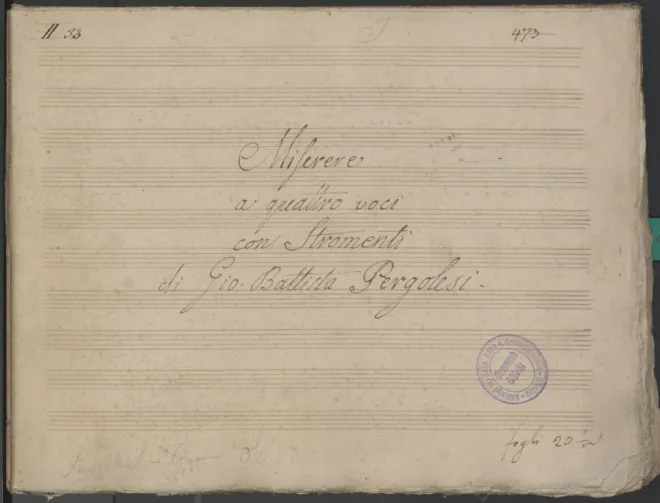 II 53
473
Miserere
a quattro voci
con Stromenti
di Gio. Battista Pergolesi.
fogli 20